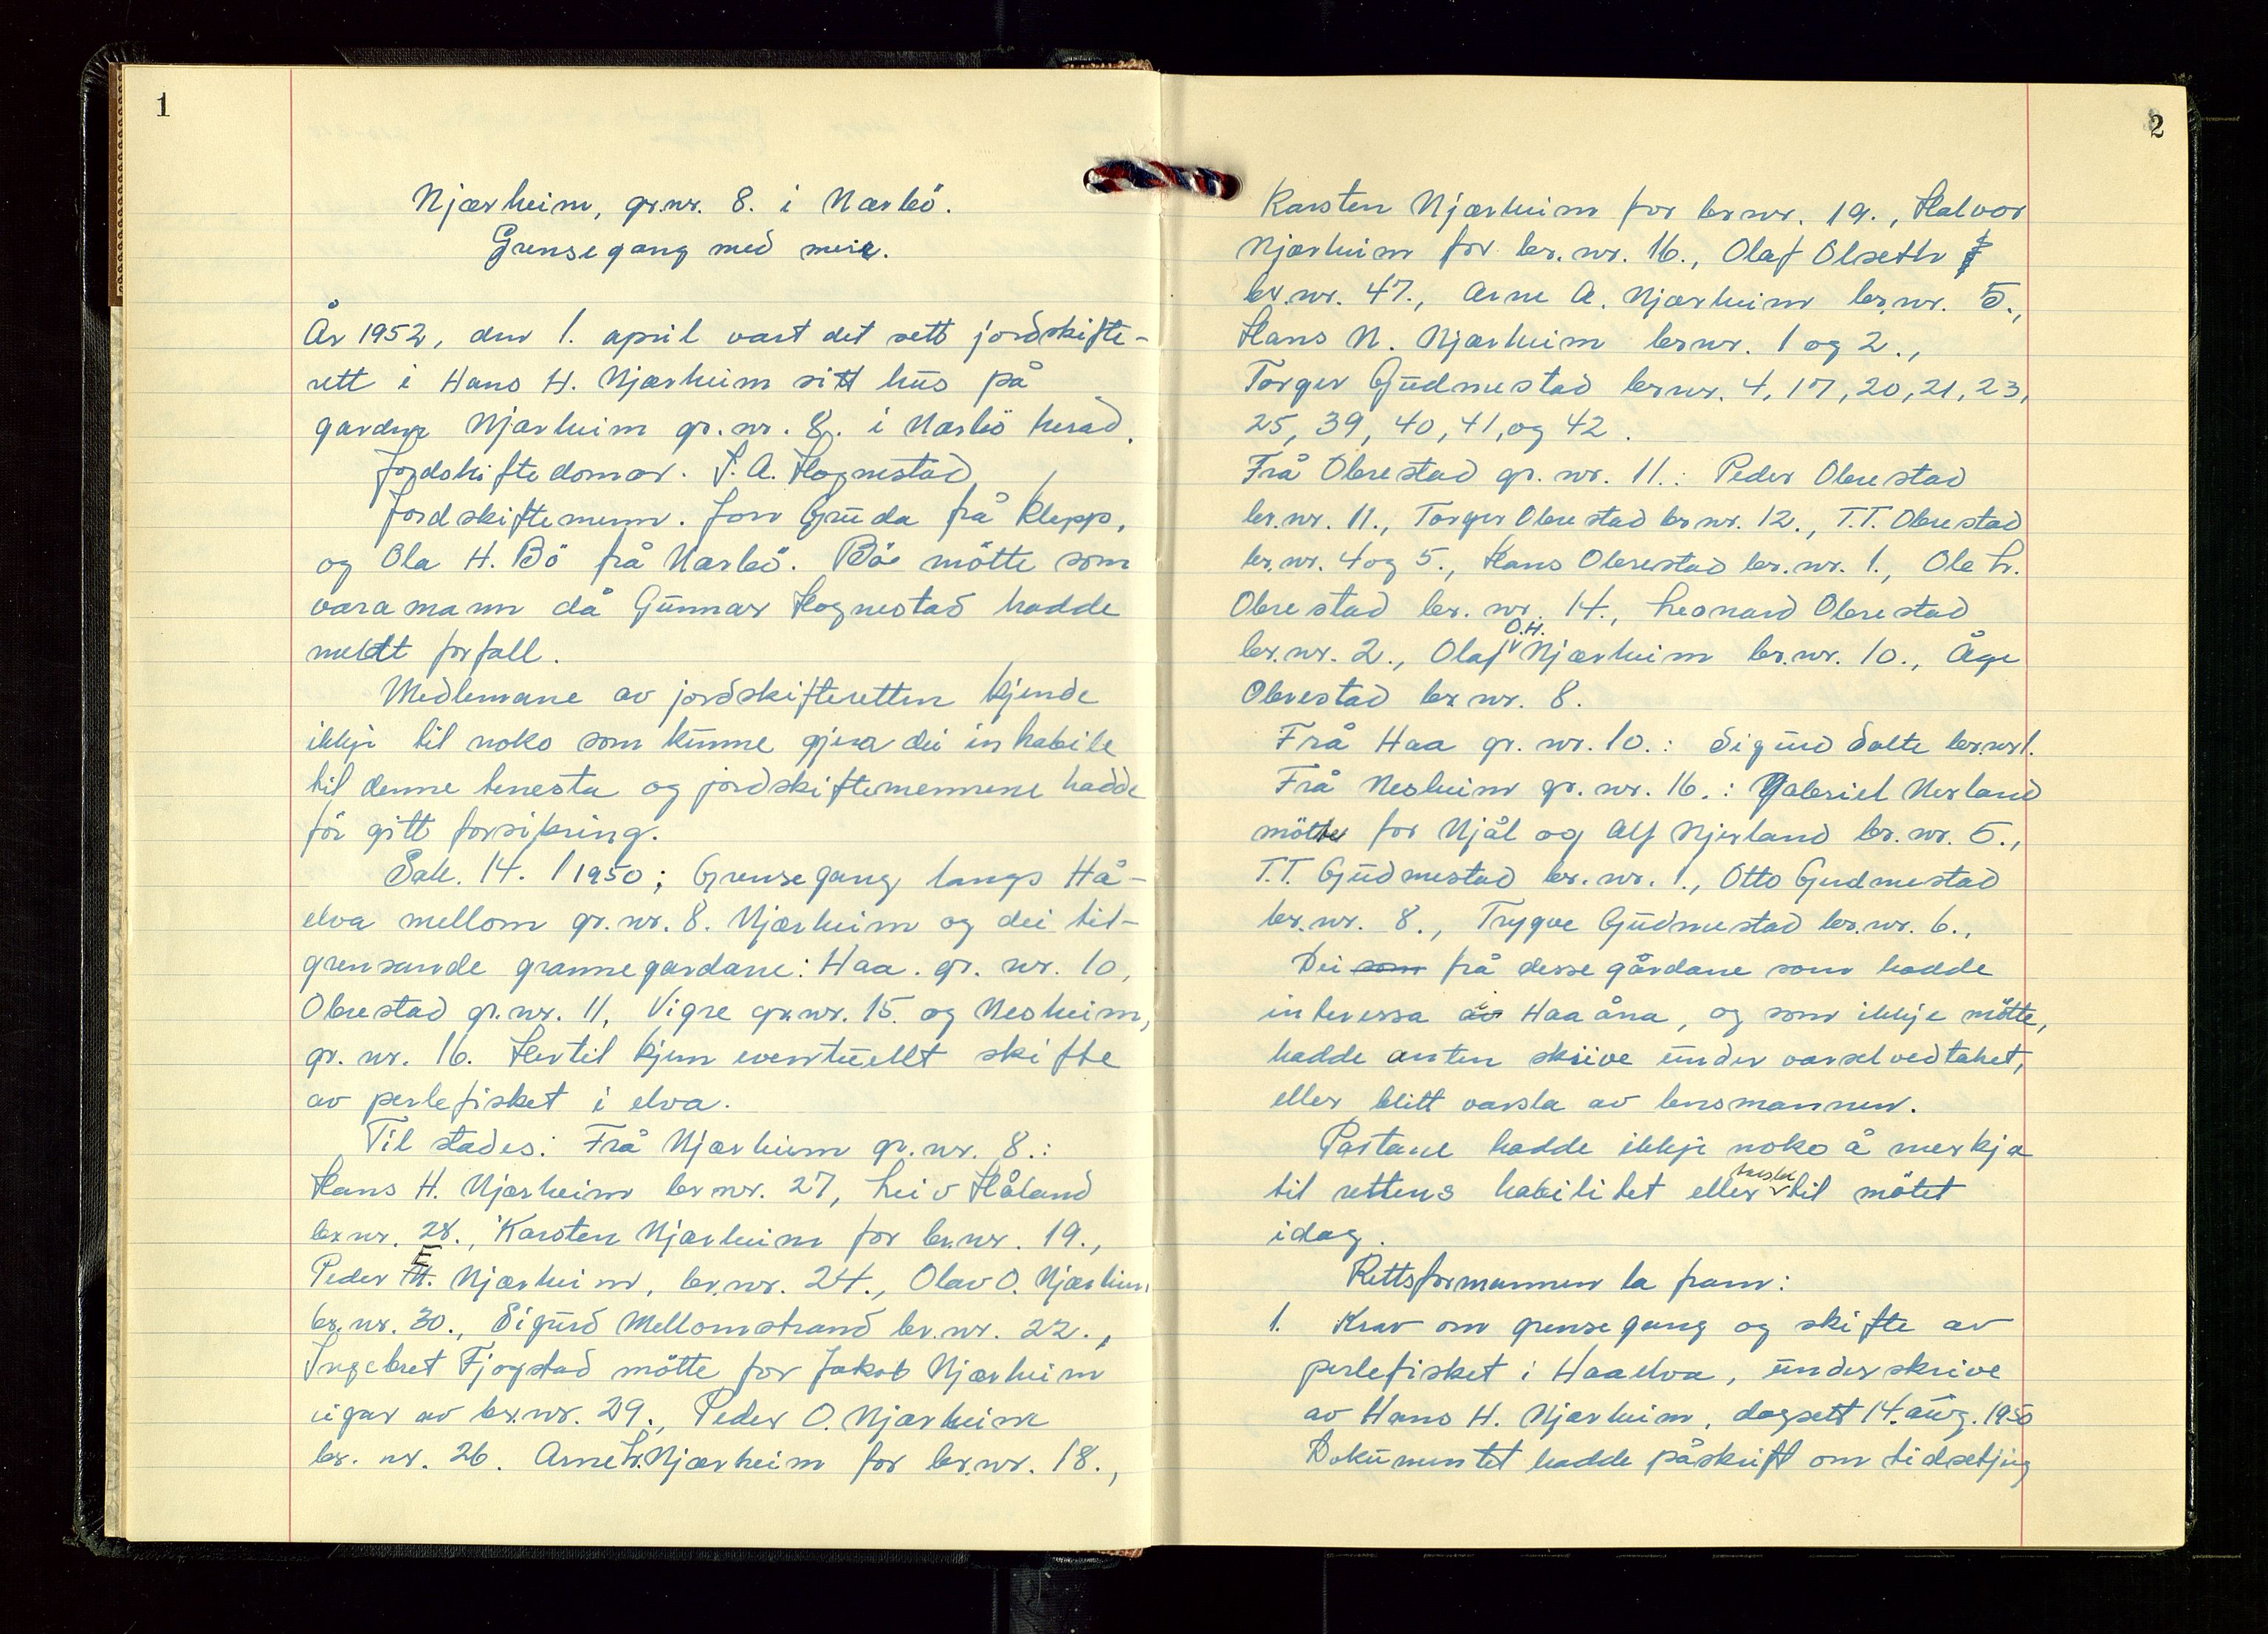 1
Njærheim, gr.nr. 8. i Nærbö.
Grensegang med meir.
År 1952, den 1. april vart det sett jordskifte-
rett i Hans H. Njærheim sitt hus på
garden Njærheim gr.nr. 8. i Nærbö herad.
Jordskiftedomar. S. A. Hognestad
Jordskiftemenn. Jon Gruda frå Klepp,
og Ola H. Bö frå Nærbö. Bö mötte som
varamann då Gunnar Hognestad hadde
meldt forfall.
Medlemane av jordskifteretten kjende
ikkje til noko som kunne gjera dei inhabile
til denne tenesta og jordskiftemennene hadde
för gitt forsikring.
Sak. 14. / 1950; Grensegang langs Hå-
elva mellom gr.nr. 8. Njærheim og dei til-
grensande grannegardane: Haa. gr. nr. 10,
Obrestad gr.nr. 11, Vigre gr.nr. 15. og Nesheim,
gr. nr. 16. Hertil kjem eventuellt skifte
av perlefisket i elva.
Til stades: Frå Njærheim gr.nr. 8.:
Hans H. Njærheim br.nr. 27, Leiv Håland
br.nr. 28., Karsten Njærheim for br.nr. 19.,
Peder E. Njærheim, br.nr. 24., Olav O. Njærheim
br.nr. 30., Sigurd Mellomstrand br.nr. 22.,
Ingebret Fjogstad mötte for Jakob Njærheim
eigar av br.nr. 29., Peder O. Njærheim
br. nr. 26. Arne L. Njærheim for br.nr. 18.,
2
Karsten Njærheim for br.nr. 19., Halvor
Njærheim for br.nr. 16., Olaf Olseth
br.nr. 47., Arne A. Njærheim br.nr. 5.,
Hans N. Njærheim br.nr. 1 og 2.,
Torger Gudmestad br.nr. 4, 17, 20, 21, 23,
25, 39, 40, 41, og 42.
Frå Obrestad gr. nr. 11.: Peder Obrestad
br.nr. 11., Torger Obrestad br.nr. 12., T.T. Obrestad
br.nr. 4 og 5., Hans Obrestad br.nr. 1., Ole L.
Obrestad br. nr. 14., Leonard Obrestad
br.nr. 2., Olaf O.H. Njærheim br.nr. 10., Åge
Obrestad br.nr. 8.
Frå Haa gr. nr. 10.: Sigurd Salte br.nr 1.
Frå Nesheim gr. nr. 16.: Gabriel Nerland
mötte for Njål og Alf Njerland br. nr. 5.,
T.T. Gudmestad br. nr. 1., Otto Gudmestad
br.nr. 8., Trygve Gudmestad br.nr. 6.,
Dei som frå desse gårdane som hadde
interessa i Haaåna, og som ikkje mötte,
hadde anten skrive under varselvedtaket,
eller blitt varsla av lensmannen.
Partane hadde ikkje noko å merkja
til rettens habilitet eller til mötet
idag.
Rettsformannen la fram:
1. Krav om grensegang og skifte av
perlefisket i Haaelva, underskrive
av Hans H. Njærheim, dagsett 14. aug. 1950
Dokumentet hadde påskrift om tidsetjing